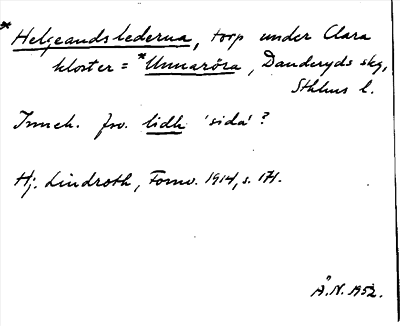 *Helgeandslederna, torp under Clara
kloster = *Unnaröra, Danderyds skg,
Sthlms l.
Inneh. fsv. lidh 'sida'?
Hj. Lindroth, Fornv. 1914, s. 171.
Å.N. 1952.